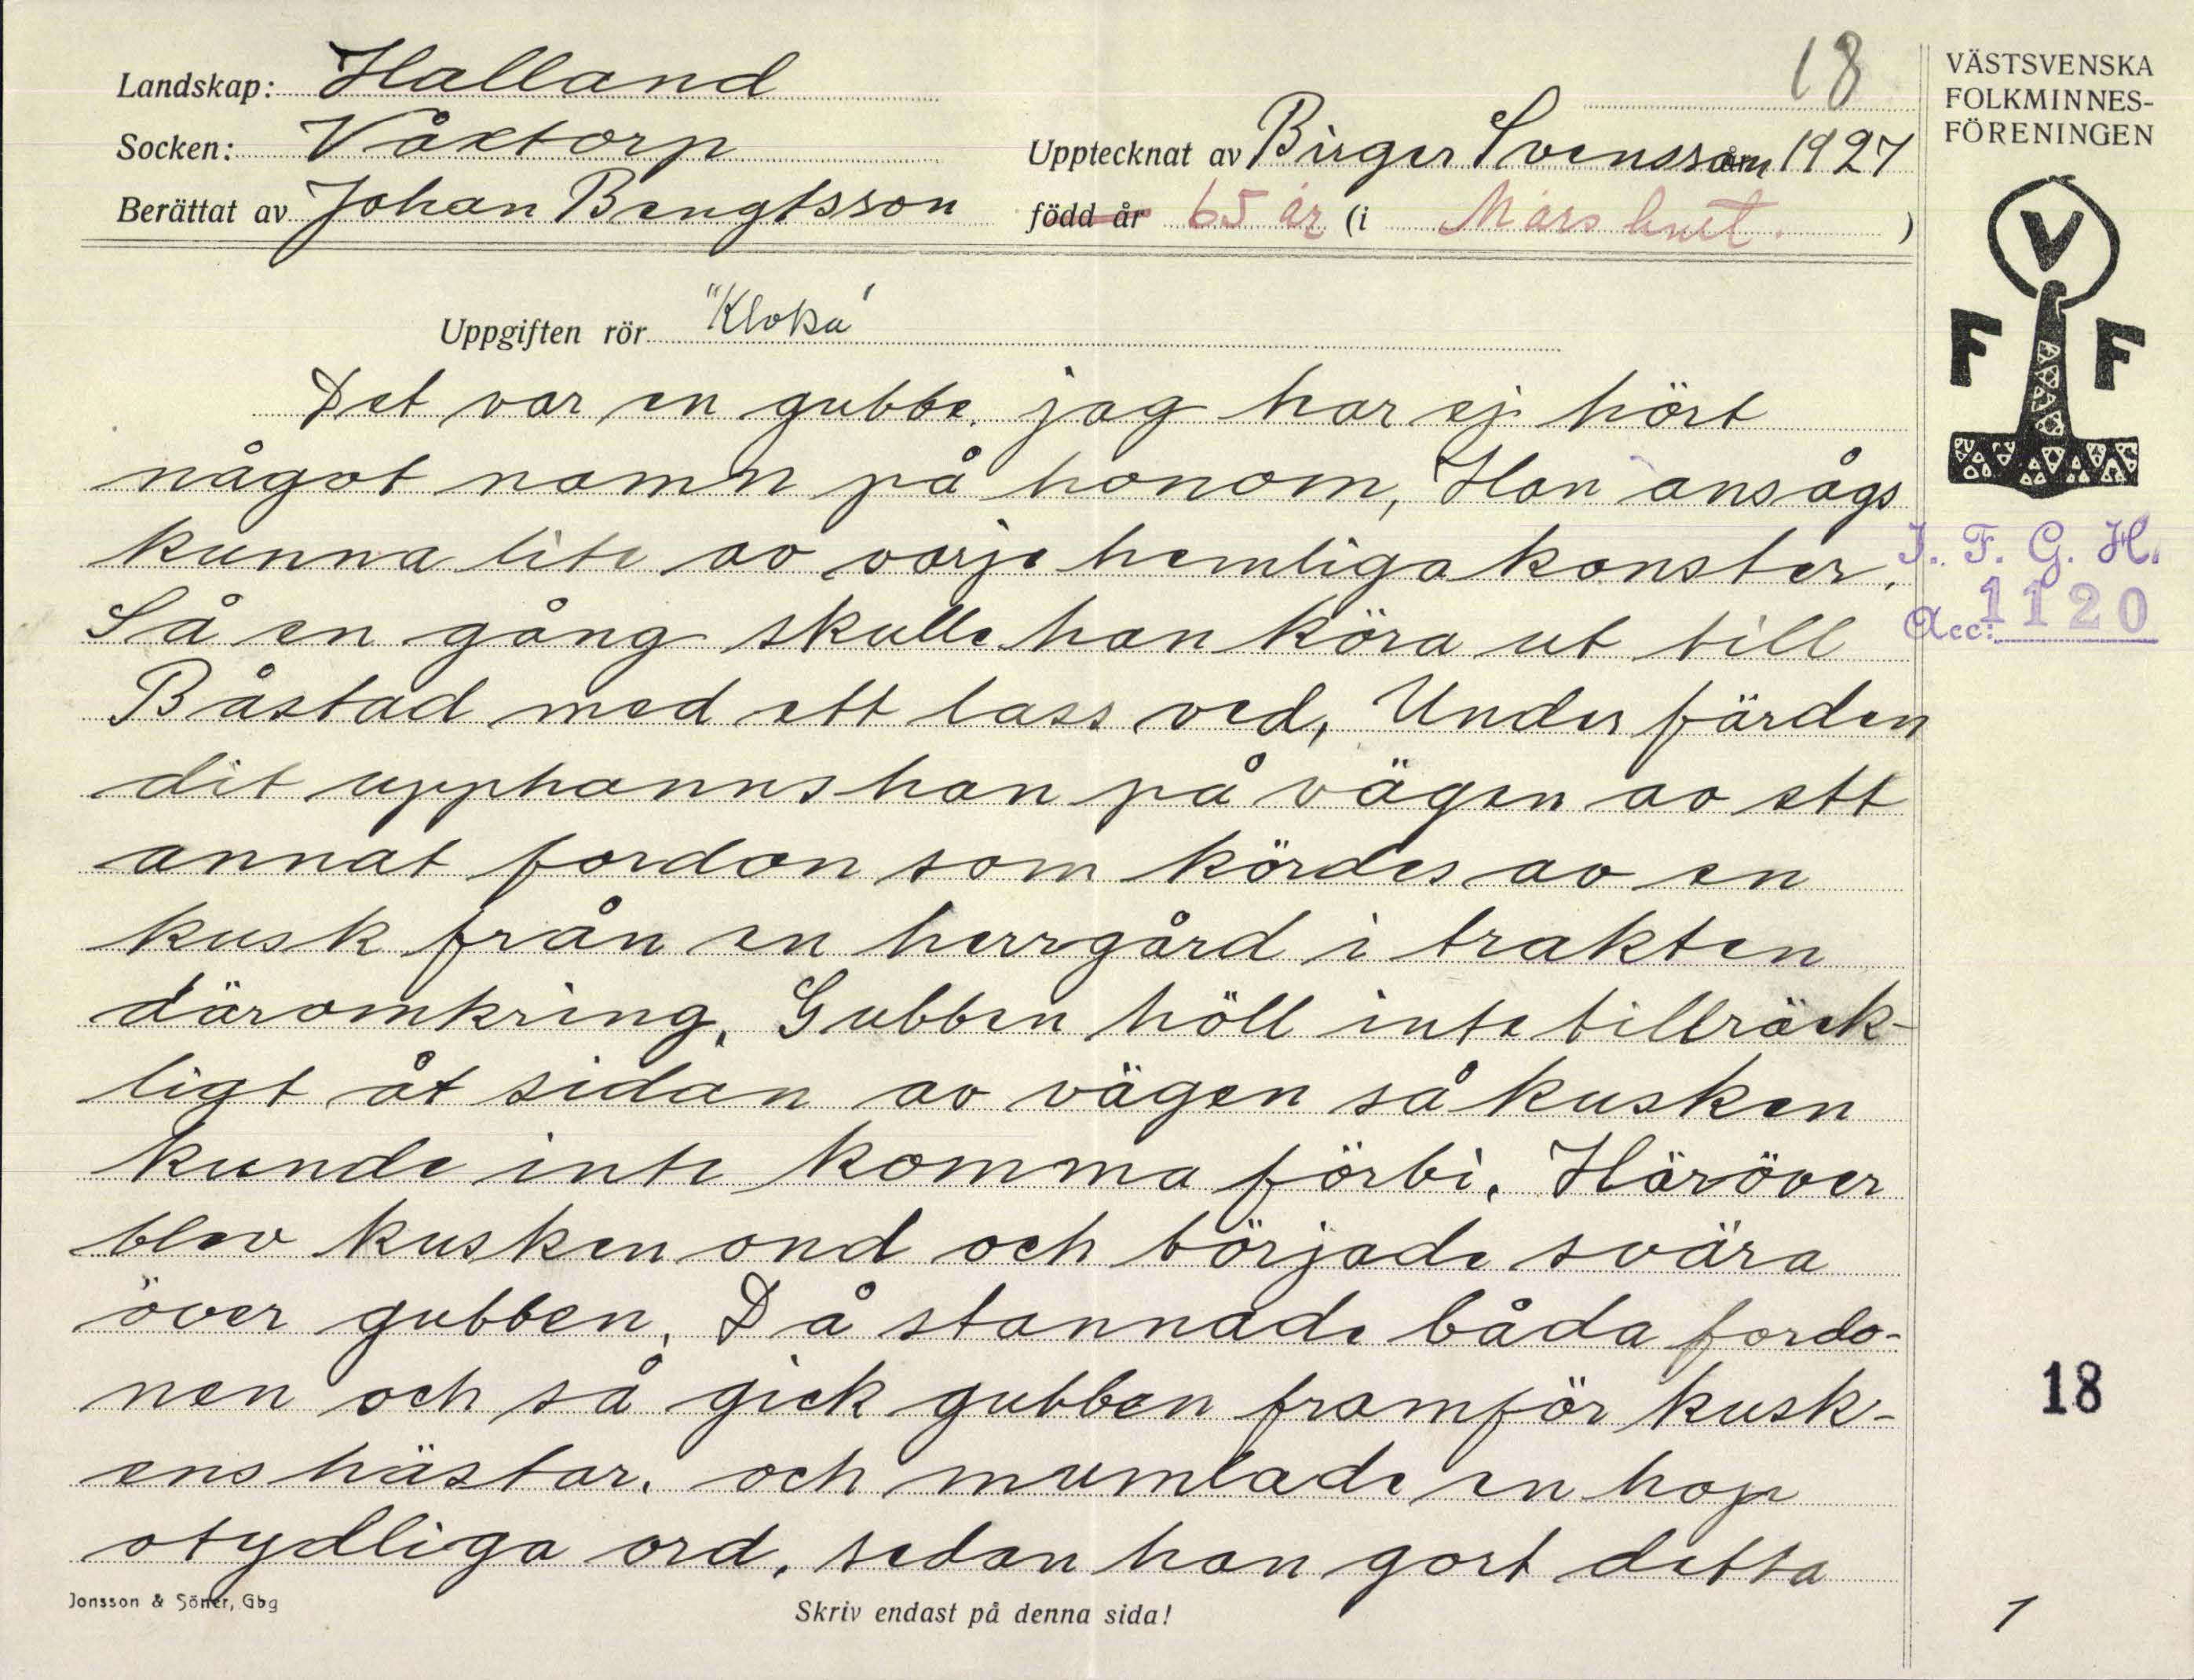 18
Landskap: Halland
Socken: Våxtorp
Upptecknat av Birger Svensson 1927
Berättat av Johan Bengtsson
född år 65 år (i Marshult.)
VÄSTSVENSKA
FOLKMINNES-
FÖRENINGEN
V
F F
Uppgiften rör "Kloka"
Det var en gubbe, jag har ej hört
något namn på honom, Han ansågs
kunna lite av varje hemliga konster.
Så en gång skulle han köra ut till
Båstad med ett lass ved, Under färden
dit upphanns han på vägen av ett
annat fordon som kördes av en
kusk från en herrgård i trakten
däromkring. Gubben höll inte tillräck-
ligt åt sidan av vägen så kusken
kunde inte komma förbi. Häröver
blev kusken ond och började svära
över gubben. Då stannade båda fordo-
nen och så gick gubben framför kusk-
ens hästar. och mumlade en hop
otydliga ord, sedan han gort detta
I. F. G. H.
Acc: 1120
18
Jonsson & Söner, Gbg
Skriv endast på denna sida!
1